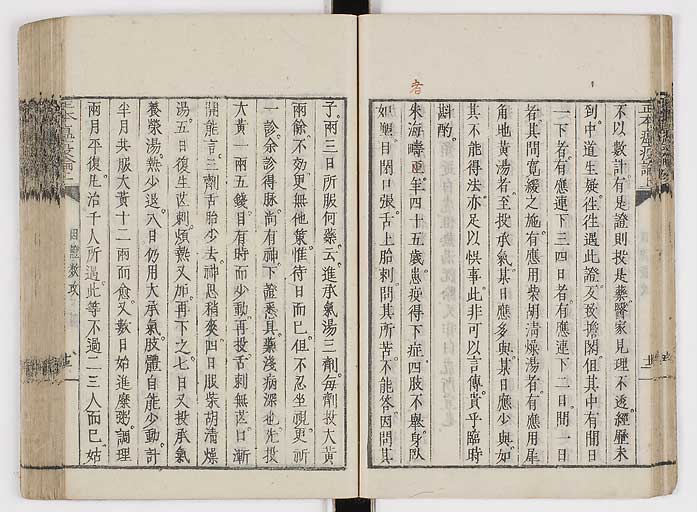 不以數計有是證則投是藥醫家見理不透經歷未
到中道生疑往往遇此證反致擔閣但其中有間日
一下者有應連下三四日者有應連下二日間一日
者其間寬緩之施有應用柴胡清燥湯者有應用犀
角地黃湯者至投承氣某日應多與某日應少與如
其不能得法亦足以悞事此非可以言傳貴乎臨時
斟酌
朱海疇年四十五歲患疫得下症四肢不舉身臥
如塑目閉口張舌上胎刺問其所苦不能答因問其
子兩三日所服何藥云進承氣湯三劑每劑投大黃
兩餘不効更無他策惟待日而已但不忍坐視更祈
一診余診得脉尚有神下證悉具藥淺病深也先投
大黃一兩五錢目有時而少動再投舌刺無芒口漸
開能言三劑舌胎少去神思稍爽四日服柴胡清燥
湯五日復生芒刺煩熱又加再下之七日又投承氣
養榮湯熱少退八日仍用大承氣肢體自能少動計
半月共服大黃十二兩而愈又數日始進糜粥調理
兩月平復凢治千人所遇此等不過二三人而已姑
者
因證數攻